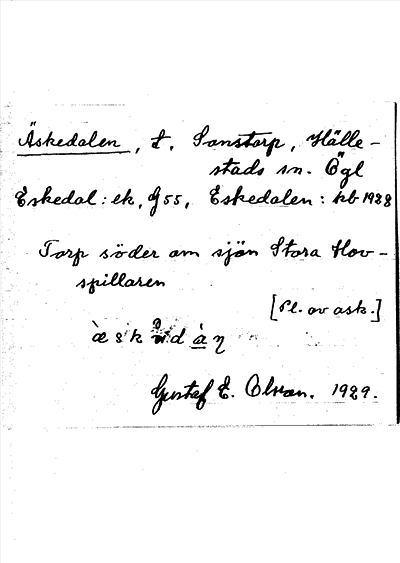 Äskedalen, t. Sanstorp, Hälle-
stads sn. Ögl
Eskedal: ek. G55, Eskedalen: kb 1928
Torp söder om sjön Stora Hov-
spillaren
[Pl. av ask.]
Gustaf E. Olsson. 1929.